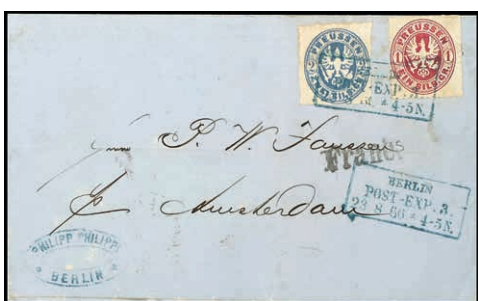 PREUSSEN
2 ZWEI SILBGR. 2
PREUSSEN
1 EIN SILBGR. 1
POST-EXP. 3.
4-5N.
P. W. Janssens
Franco
p. Amsterdam
BERLIN
POST-EXP. 3.
22 8 66 * 4-5N.
PHILIPP PHILIPP
BERLIN